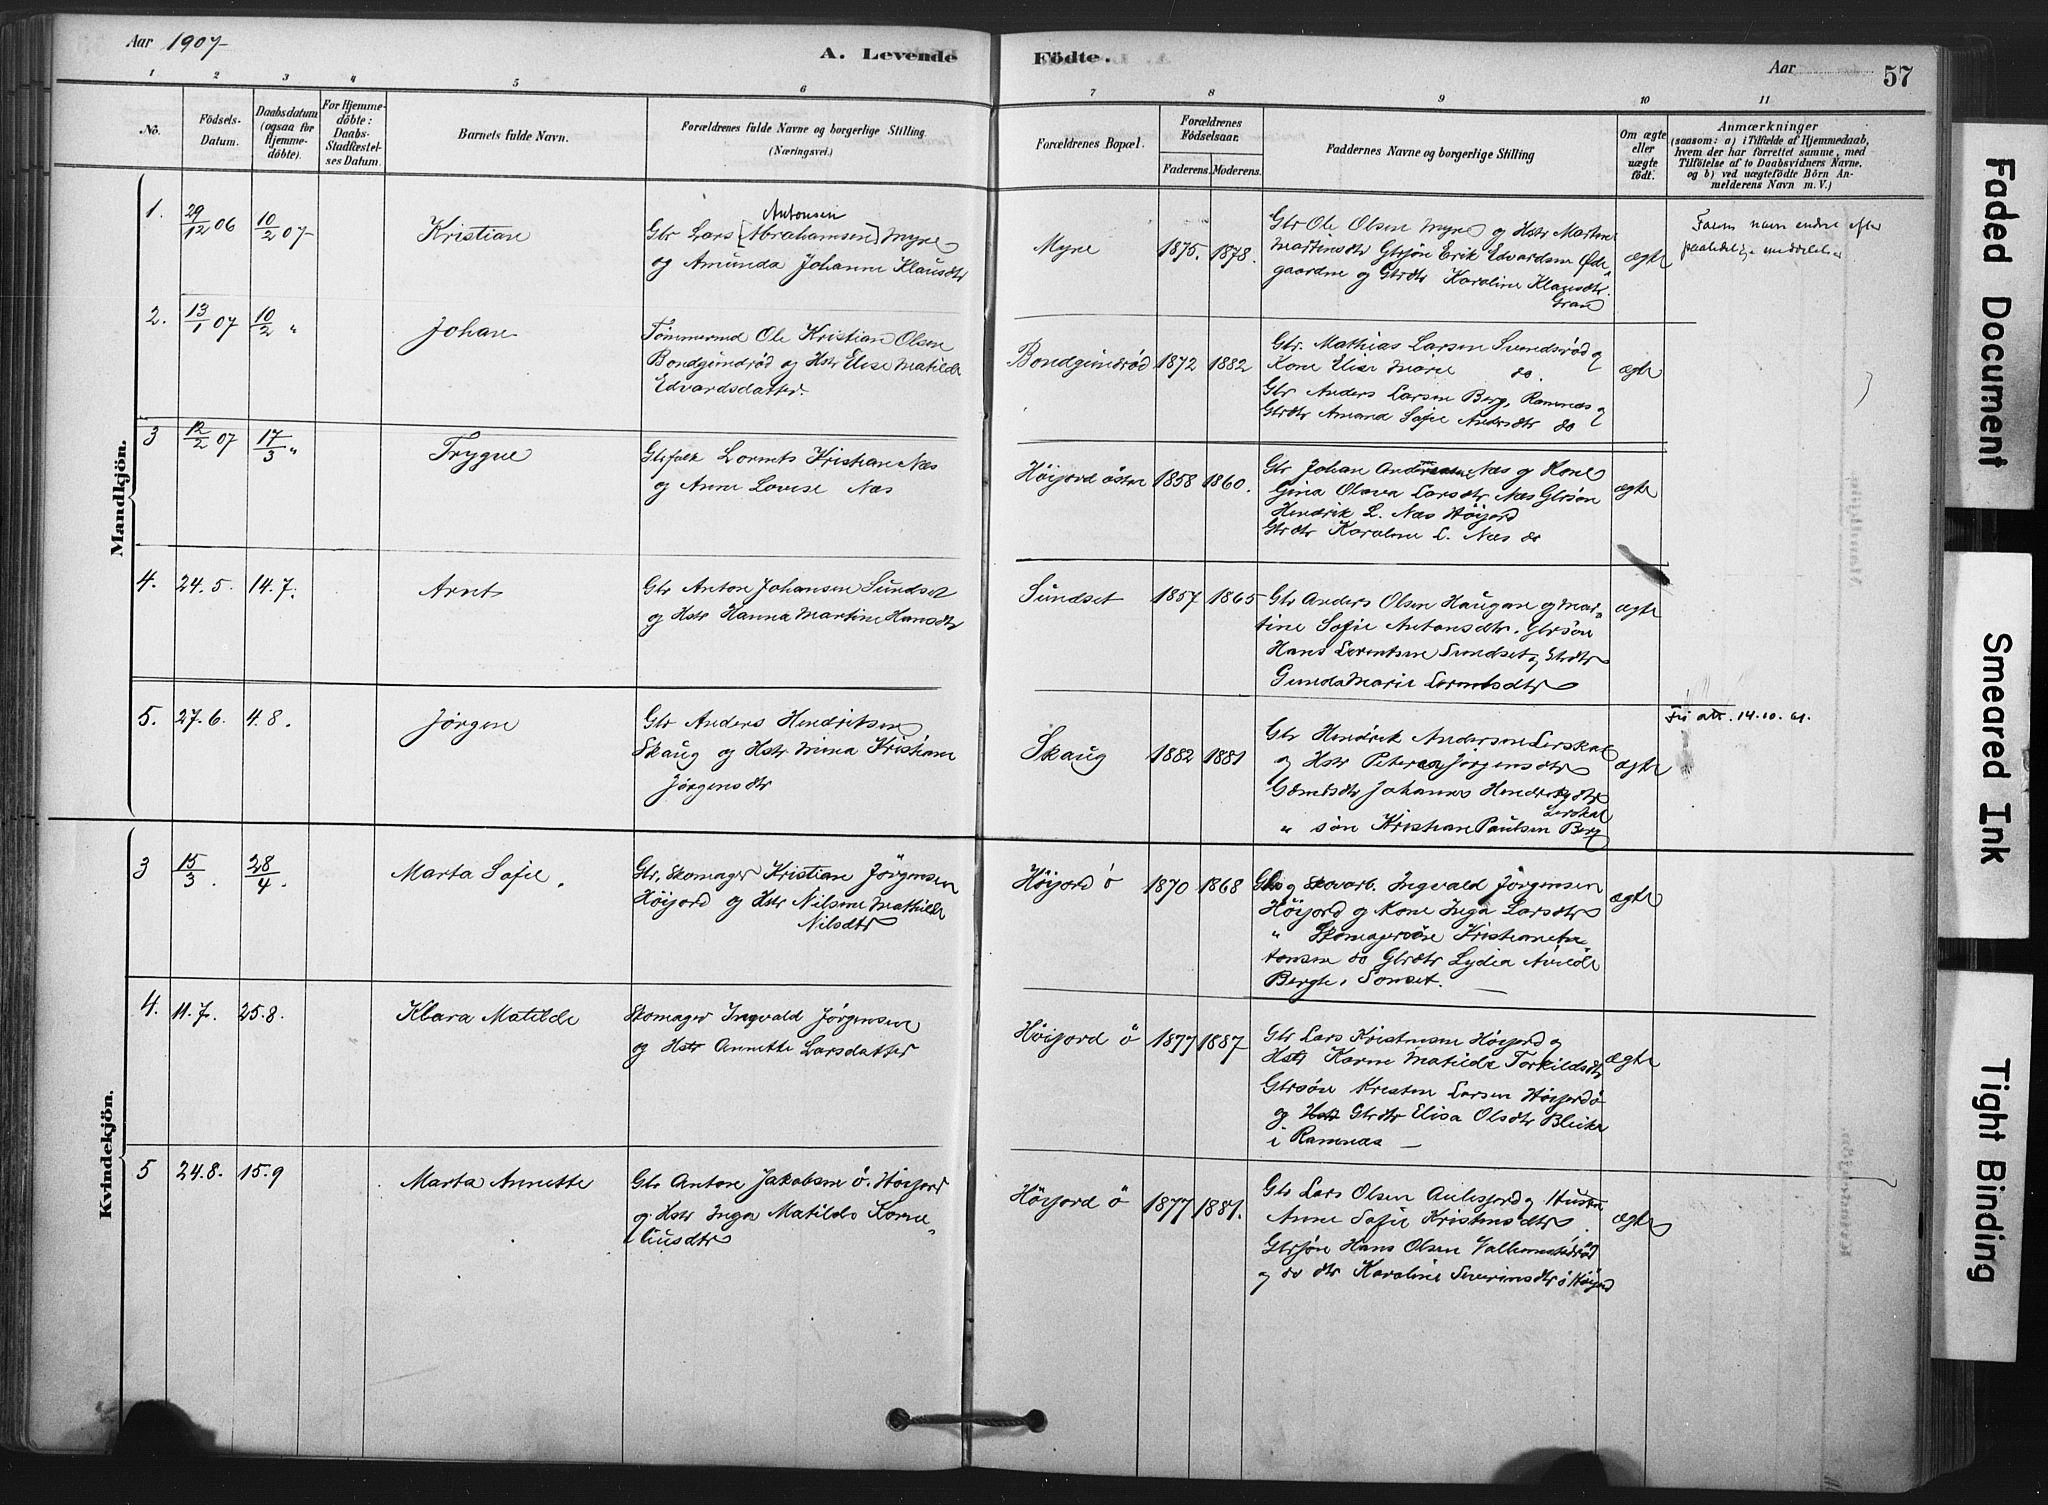 Aar 1907
A. Levende
Födte.
Aar
57
1
2
3
4
5
6
7
8
9
10
11
No.
Födsels-
Datum.
Daabsdatum
(ogsaa for
Hjemme-
döbte).
For Hjemme-
döbte:
Daabs-
Stadfæstel-
ses Datum.
Barnets fulde Navn.
Forældrenes fulde Navne og borgerlige Stilling.
(Næringsvei.)
Forældrenes Bopæl.
Forældrenes
Födselsaar.
Faderens.
Moderens.
Faddernes Navne og borgerlige Stilling
Om ægte
eller
uægte
födt.
Anmærkninger
(saasom: a) i Tilfælde af Hjemmedaab,
hvem der har forrettet samme, med
Tilföielse af to Daabsvidners Navne.
og b) ved uægtefödte Börn An-
melderens Navn m. V.)
Mandkjön.
1.
29/12 06
10/2 07
Kristian
Antonsen
Gbr Lars [Abrahamsen] Myre
og Amunda Johanne Klausdtr
Myre
1875.
1878.
Gbr Ole Olsen Myre og Hstr Martine
Martinsdtr Gbrsön Erik Edvardsen Øde
gaarden og Gbrdtr Karoline Klausdtr.
Gran
ægte
Farens navn endret efter
2.
13/1 07
10/2 "
Johan
Tömmermd Ole Kristian Olsen
Bondgundröd og Hstr Elise Matilde
Edvardsdatter.
Bondgundröd
1872
1882
Gbr. Mathias Larsen Svendsröd og
Kone Elise Marie do.
Gbr Anders Larsen Berg, Ramnæs og
Gbrdtr Amand Sofie Andersdtr do
ægte
3
12/2 07
17/3 "
Trygve
Gbrfolk Lorents Kristian Næs
og Anne Lovise Næs
Höijord östre
1858
1860.
Gbr Johan Andersen Næs og Kone
Gina Olava Larsdtr Næs Gbrsön
Hendrik L. Næs Höijord
Gbrdtr Karoline L. Næs do
ægte
4.
24.5.
14.7.
Arnt
Gbr Anton Johansen Sundset
og Hstr Hanna Martine Hansdtr
Sundset
1857
1865
Gbr Anders Olsen Haugan og Mar-
tine Sofie Antonsdtr. Gbrsön
Hans Lorentsen Sundset og Gbrdtr
Gunda Marie Lorentsdtr
ægte
5.
27.6.
4.8.
Jörgen
Gbr Anders Hendriksen
Skaug og Hstr Mina Kristiane
Jörgensdtr
Skaug
1882
1881
Gbr Hendrik Andersen Lerskal
og Hstr Jörgensdtr
Johanne
Lerskal
" sön Kristian Paulsen Berg
ægte
14.10.61.
Kvindekjön.
3
15/3.
28/4.
Marta Sofie.
Gbr. Skomager Kristian Jörgensen
Höijord og Hstr Nilsine Mathilde
Nilsdtr
Höijord ö
1870
1868
Gbr og Skovarb. Ingvald Jörgensen
Höijord og Kone Inga Larsdtr
" Skomagersön Kristian An-
tonsen do Gbrdtr Lydia
Berghe, Sonset.
ægte
4.
11.7.
25.8.
Klara Matilde
Skomager Ingvald Jörgensen
og Hstr Annette Larsdatter
Höijord ö
1877
1887
Gbr Lars Kristensen Höijord og
Hstr Karen Matilde Torkildsdtr
Gbrsön Kristen Larsen Höijord ö
og Hstr Gbrdtr Elisa Olsdtr Bleika
i Ramnæs
ægte
5
24.8.
15.9
Marta Annette
Gbr Anton Jakobsen ö. Höijord
og Hstr Inga Matilde Korne-
liusdtr
Höijord ö
1877
1881.
Gbr Lars Olsen Aulesjord og Hustru
Anne Sofie Kristensdtr
Gbrsön Hans Olsen
og do dtr Karoline Severinsdtr ö Höijord
ægte
Faded Document
Smeared Ink
Tight Binding